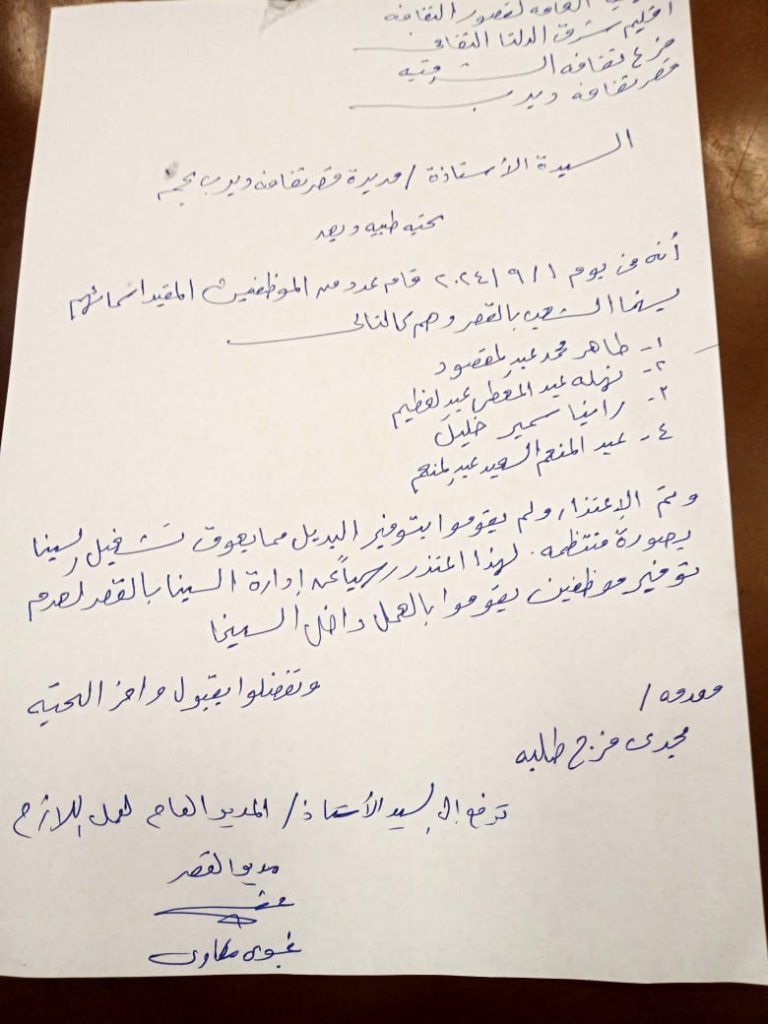 العامه لقصور الثقافه
اقليم شرق الدلتا الثقافى
فرع ثقافه الشرقيه
قصر ثقافه ديرب
السيدة الأستاذة / مديرة قصر ثقافه ديرب نجم
تحيه طيبه وبعد
أنه من يوم ٢٠٢٤/٩/١ قام عدد من الموظفين المقيد اسمائهم
بسينما الشعب بالقصر وهم كالتالى
١- طاهر محمد عبد المقصود
٢- نهله عبد المعطى عبد العظيم
٣- رانيا سمير خليل
٤- عبد المنعم السعيد عبد المنعم
وتم الإعتذار ولم يقوموا بتوفير البديل مما يعوق تشغيل السينما
بصورة منتظمه. لهذا اعتذر رسمياً عن إدارة السينما بالقصر لعدم
توفير موظفين يقوموا بالعمل داخل السينما
وتفضلوا بقبول وافر التحيه
مقدمه /
مجدى فرج طلبه
ترفع إلى السيد الأستاذ / المدير العام لعمل اللازم
مدير القصر
نجوى